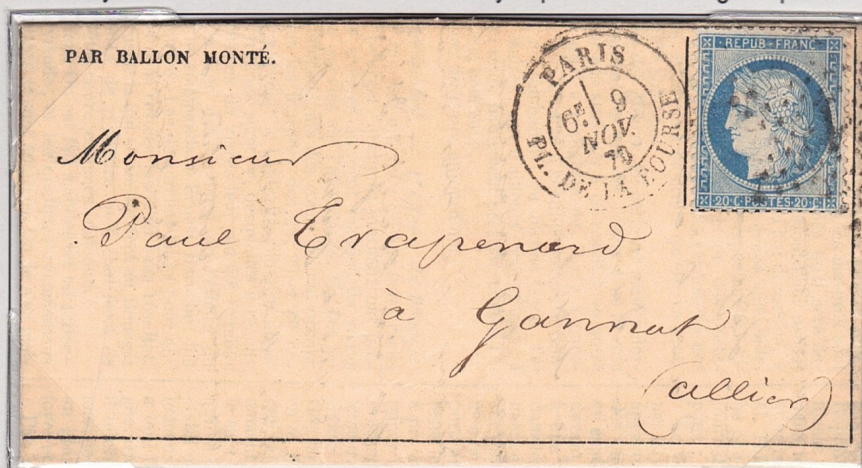 PAR BALLON MONTÉ.
PARIS
6E 9
NOV.
70
PL. DE LA BOURSE
REPUB·FRANC
20·C·POSTES·20·C
Monsieur
Paul Trapenard
à Gannat
(allier)